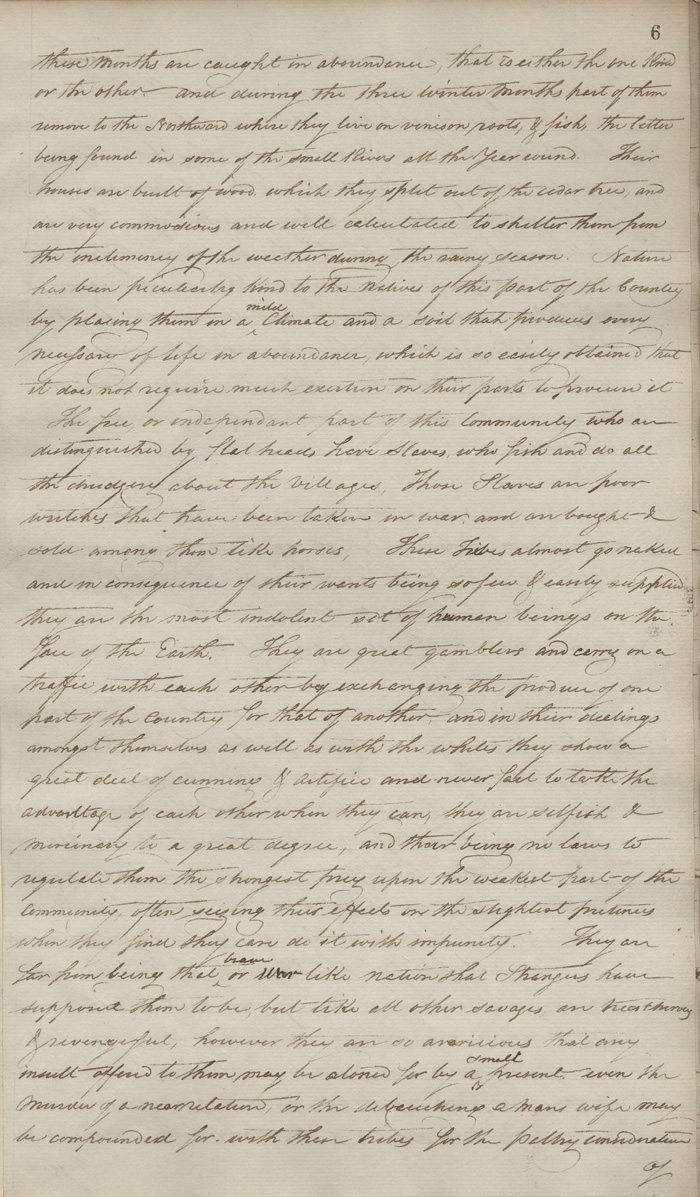 6
these months are caught in aboundance, that is either the one kind
or the other - and during the three winter months part of them
remove to the Northward where they live on venison roots, & fish, the letter
being found in some of the small Rivers all the Year round. Their
houses are built of wood. which they split out of the cedar tree, and
are very commodious and well calculated to shelter them from
the inclemency of the weether during the rainy season. Nature
has been peculiarly kind to the natives of this part of the Country
by placing them in a ^mild Climate and a soil that produces every
necessary of life in aboundance, which is so easily obtained that
it does not require much exertion on their parts to procure it
The free, or independant part of this Community who are
distinguished by flat heads have Slaves, who fish and do all
the drudgery about the villages, Those Slaves are poor
wretches that have been taken in war. and are bought &
sold among them like horses, These Tribes almost go naked
and in consequence of their wants being so few & easily supplied
they are the most indolent set of human beings on the
face of the Earth. They are great gamblers and carry on a
traffic with each other by exchanging the produce of one
part of the Country for that of another - and in their dealings
amongst themselves as well as with the whites they show a
great deel of cunning & artifice and never fail to take the
advantage of each other when they can, they are selfish &
mircinary to a great degree, and their being no laws to
regulate them the strongest prey upon the weakest part of the
Community, often seizing their effects on the slightest pretences
when they find they can do it with impunity. They are
far from being that ^brave or War like nation that Strangers have
supposed them to be, but like all other savages, are treacherous
& revengeful, however they are so avaricious that any
insult offered to them, may be atoned for by a ^small present. even the
murder of a near relation, or the debauching a mans wife may
be compounded for. with these tribes for the paltry consideration
of